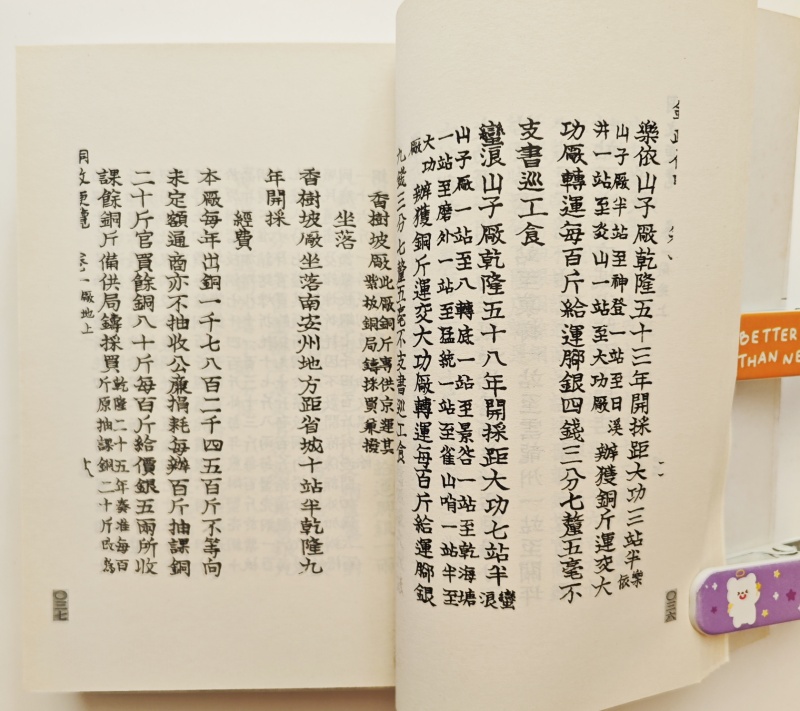 樂依山子廠乾隆五十三年開採距大功三站半樂依
山子廠半站至神登一站至日溪
井一站至炎山一站至大功廠
辦獲銅斤運交大
功廠轉運每百斤給運腳銀四錢三分七釐五毫不
支書巡工食
蠻浪山子廠乾隆五十八年開採距大功七站半蠻浪
山子廠一站至八轉底一站至景谷一站至乾海塘
一站至磨外一站至猛統一站至雀山哨一站半至
大功廠
辦獲銅斤運交大功廠轉運每百斤給運腳銀
九錢三分七釐五毫不支書巡工食
〇三六
香樹坡廠此廠銅斤專供京運其
紫板銅局鑄採買兼撥
坐落
香樹坡廠坐落南安州地方距省城十站半乾隆九
年開採
經費
本廠每年出銅一千七八百二千四五百斤不等向
未定額通商亦不抽收公廉捐耗每辦百斤抽課銅
二十斤官買餘銅八十斤每百斤給價銀五兩所收
課餘銅斤備供局鑄採買乾隆二十五年奏准每百
斤原抽課銅二十斤改為
銅政便覽 卷一廠地上
〇三七
BETTER
THAN NE